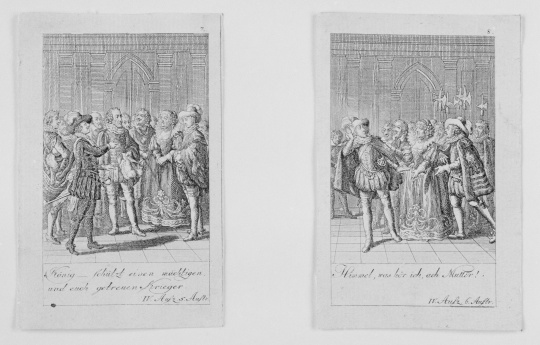 7
König — schützt einen mächtigen
und euch getreuen Krieger
IV Aufz. 5 Auftr.
8
Himmel, was hör ich, ach Mutter!
IV. Aufz. 6. Auftr.